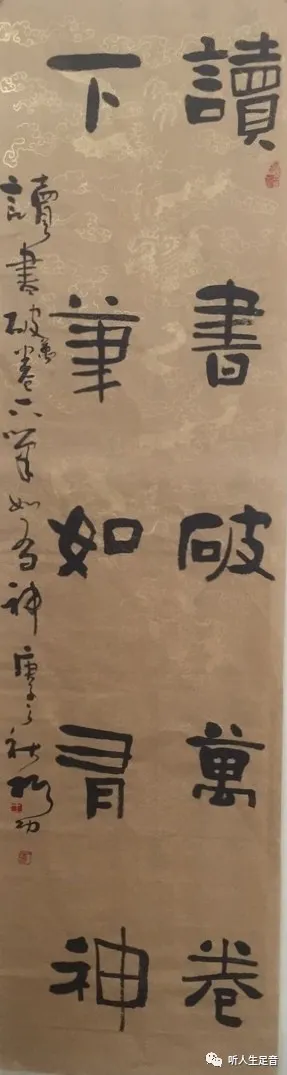 讀書破萬卷
下筆如有神
讀書破萬卷下筆如有神 庚子之秋
听人生足音